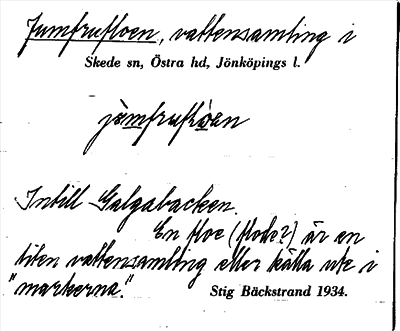 Jumfrufloen, vattensamling i
Skede sn, Östra hd, Jönköpings l.
jòmfruflóen
Intill Galgabacken.
En floe (flode?) är en
liten vattensamling eller källa ute i
"markerna."
Stig Bäckstrand 1934.